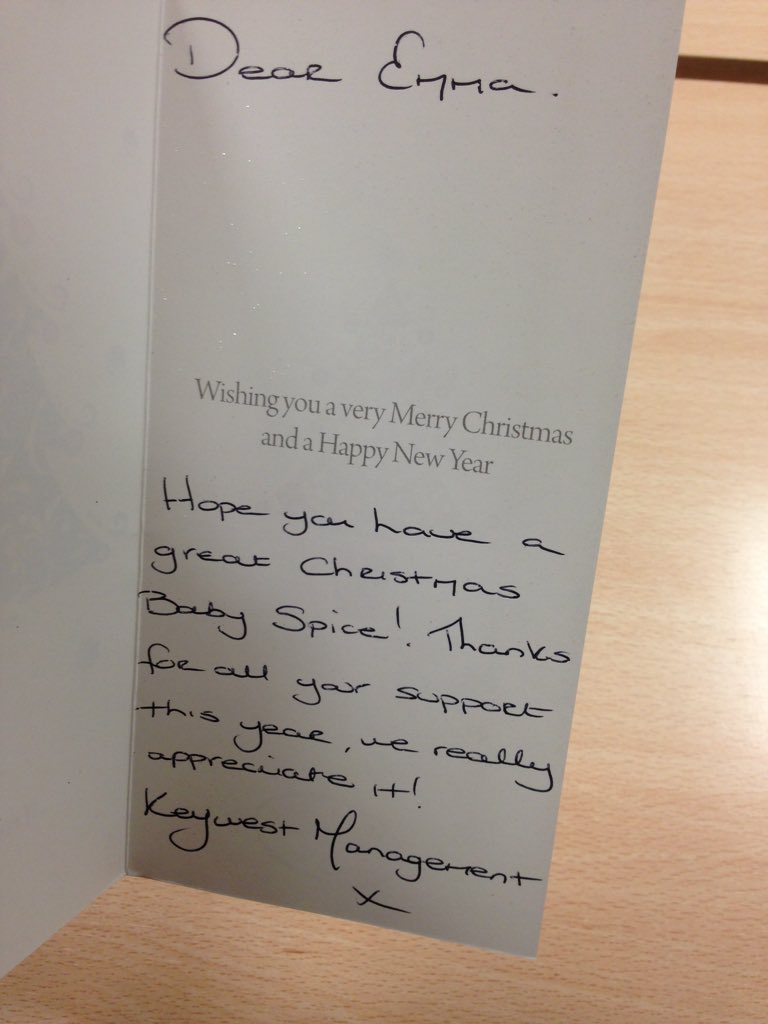 Dear Emma.
Wishing you a very Merry Christmas
and a Happy New Year
Hope you have a
great Christmas
Baby Spice! Thanks
for all your support
this year, we really
appreciate it!
Keywest Management
X